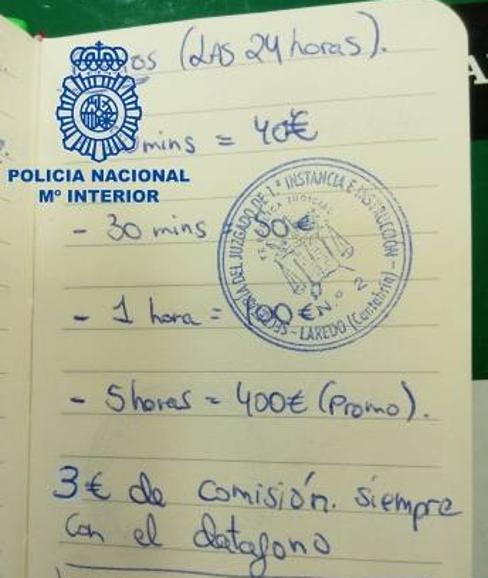 (LAS 24 horas).
mins = 40€
POLICIA NACIONAL
Mº INTERIOR
- 30 mins 50€
- 1 hora = 100€
SECRETARIA DEL JUZGADO DE 1.ª INSTANCIA E INSTRUCCIÓN N.º 2 - LAREDO (Cantabria) -
- 5 horas = 400€ (Promo).
3€ de comisión. siempre
con el datafono